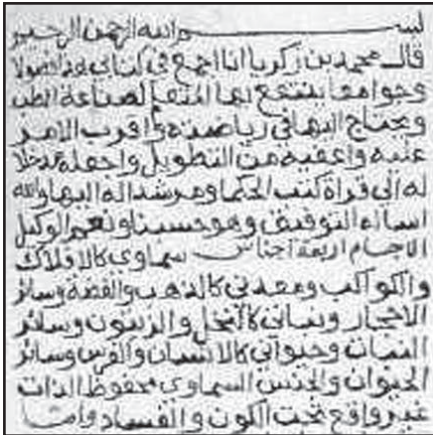 بسم الله الرحمن الرحيم
قال محمد بن زكريا انا اجمع في كتابي هذا فصولا
وجوامعا ينتفع بها المتعلم لصناعة الطب
ويحتاج اليها في رياضته واقرب الامر
عليه واعفيه من التطويل واجعله مدخلا
له الى قراة كتب الحكما ومرشدا له اليها والله
اساله التوفيق وهو حسبنا ونعم الوكيل
الاجسام اربعة اجناس سماوي كالافلاك
والكواكب ومعدني كالذهب والفضة وسائر
الاحجار ونباتي كالنخل والزيتون وسائر
النبات وحيواني كالانسان والفرس وسائر
الحيوان والجنس السماوي محفوظ الذات
غير واقع تحت الكون والفساد واما